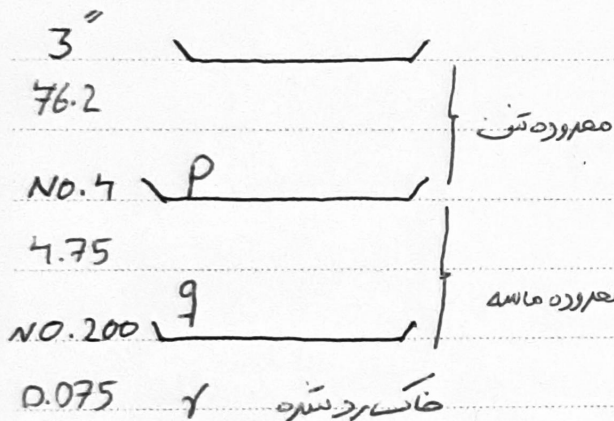 3"
76.2
محدوده شن
NO.4 P
4.75
محدوده ماسه
NO.200 q
0.075 r خاک رد شده